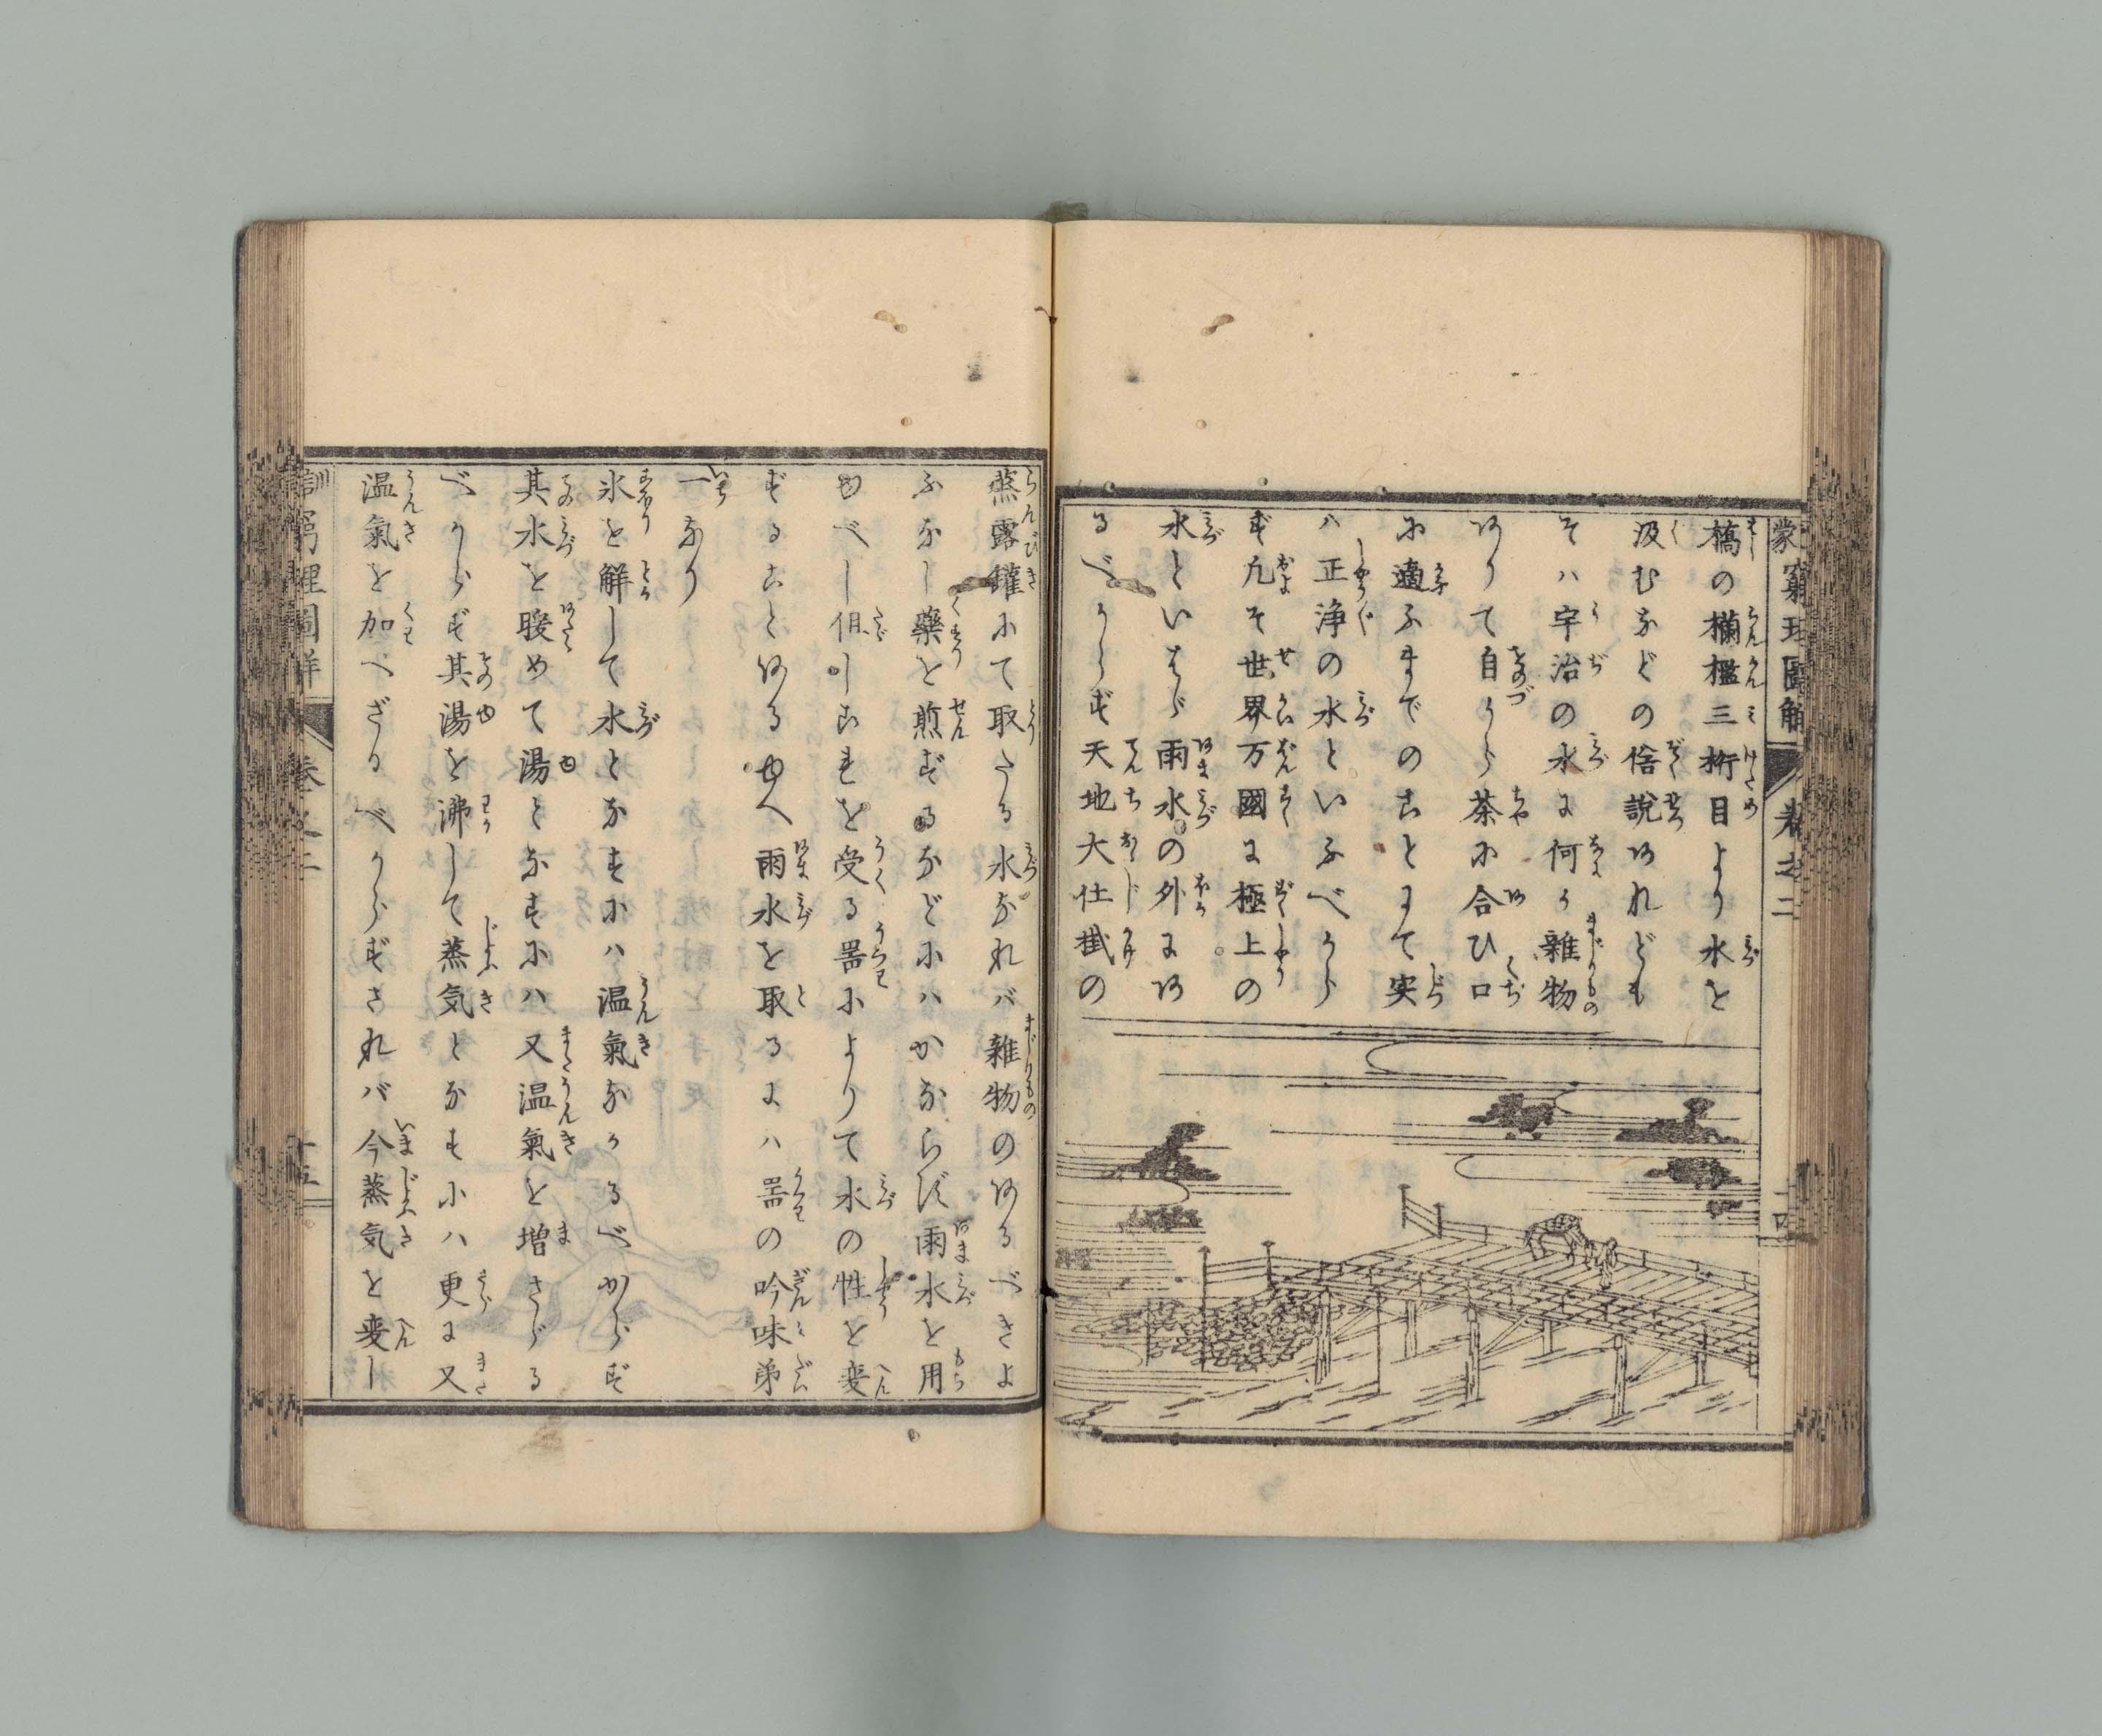 橋の欄檻三桁目より水を
汲むなどの俗説あれども
そハ宇治の水に何か雜物
ありて自から茶に合ひ口
に適ふまでのことにて実
ハ正浄の水といふべから
ず凡そ世界万國に極上の
水といはゞ雨水の外にあ
るべからず天地大仕掛の
卷之二
蒸露罐にて取たる水なれバ雜物のあるべきよ
ふなし藥を煎ずるなどにハかならず雨水を用
ゆべし但しこれを受る噐によりて水の性を変
ずることあるゆへ雨水を取るにハ噐の吟味第
一なり
氷を解して水となすにハ温氣なかるべからず
其水を暖めて湯となすにハ又温氣を増さゞる
べからず其湯を沸して蒸気となすにハ更に又
温氣を加へざるべからずされバ今蒸気を変し